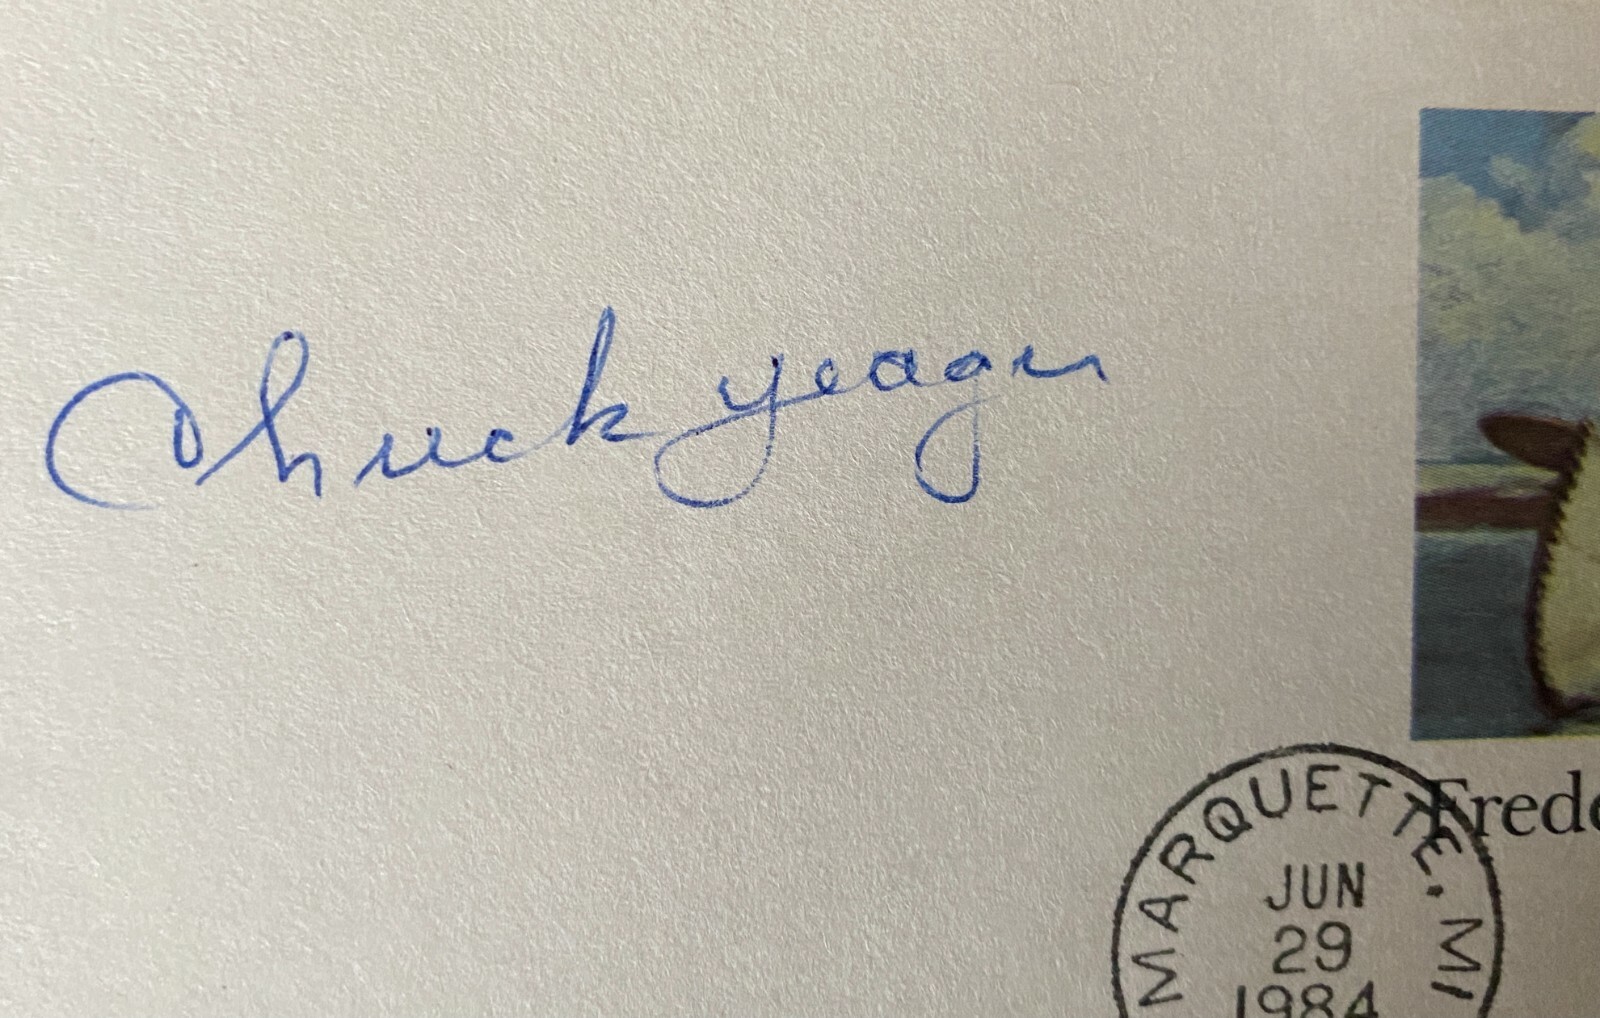 Chuck Yeager
Frede
MARQUETTE, MI
JUN
29
1984